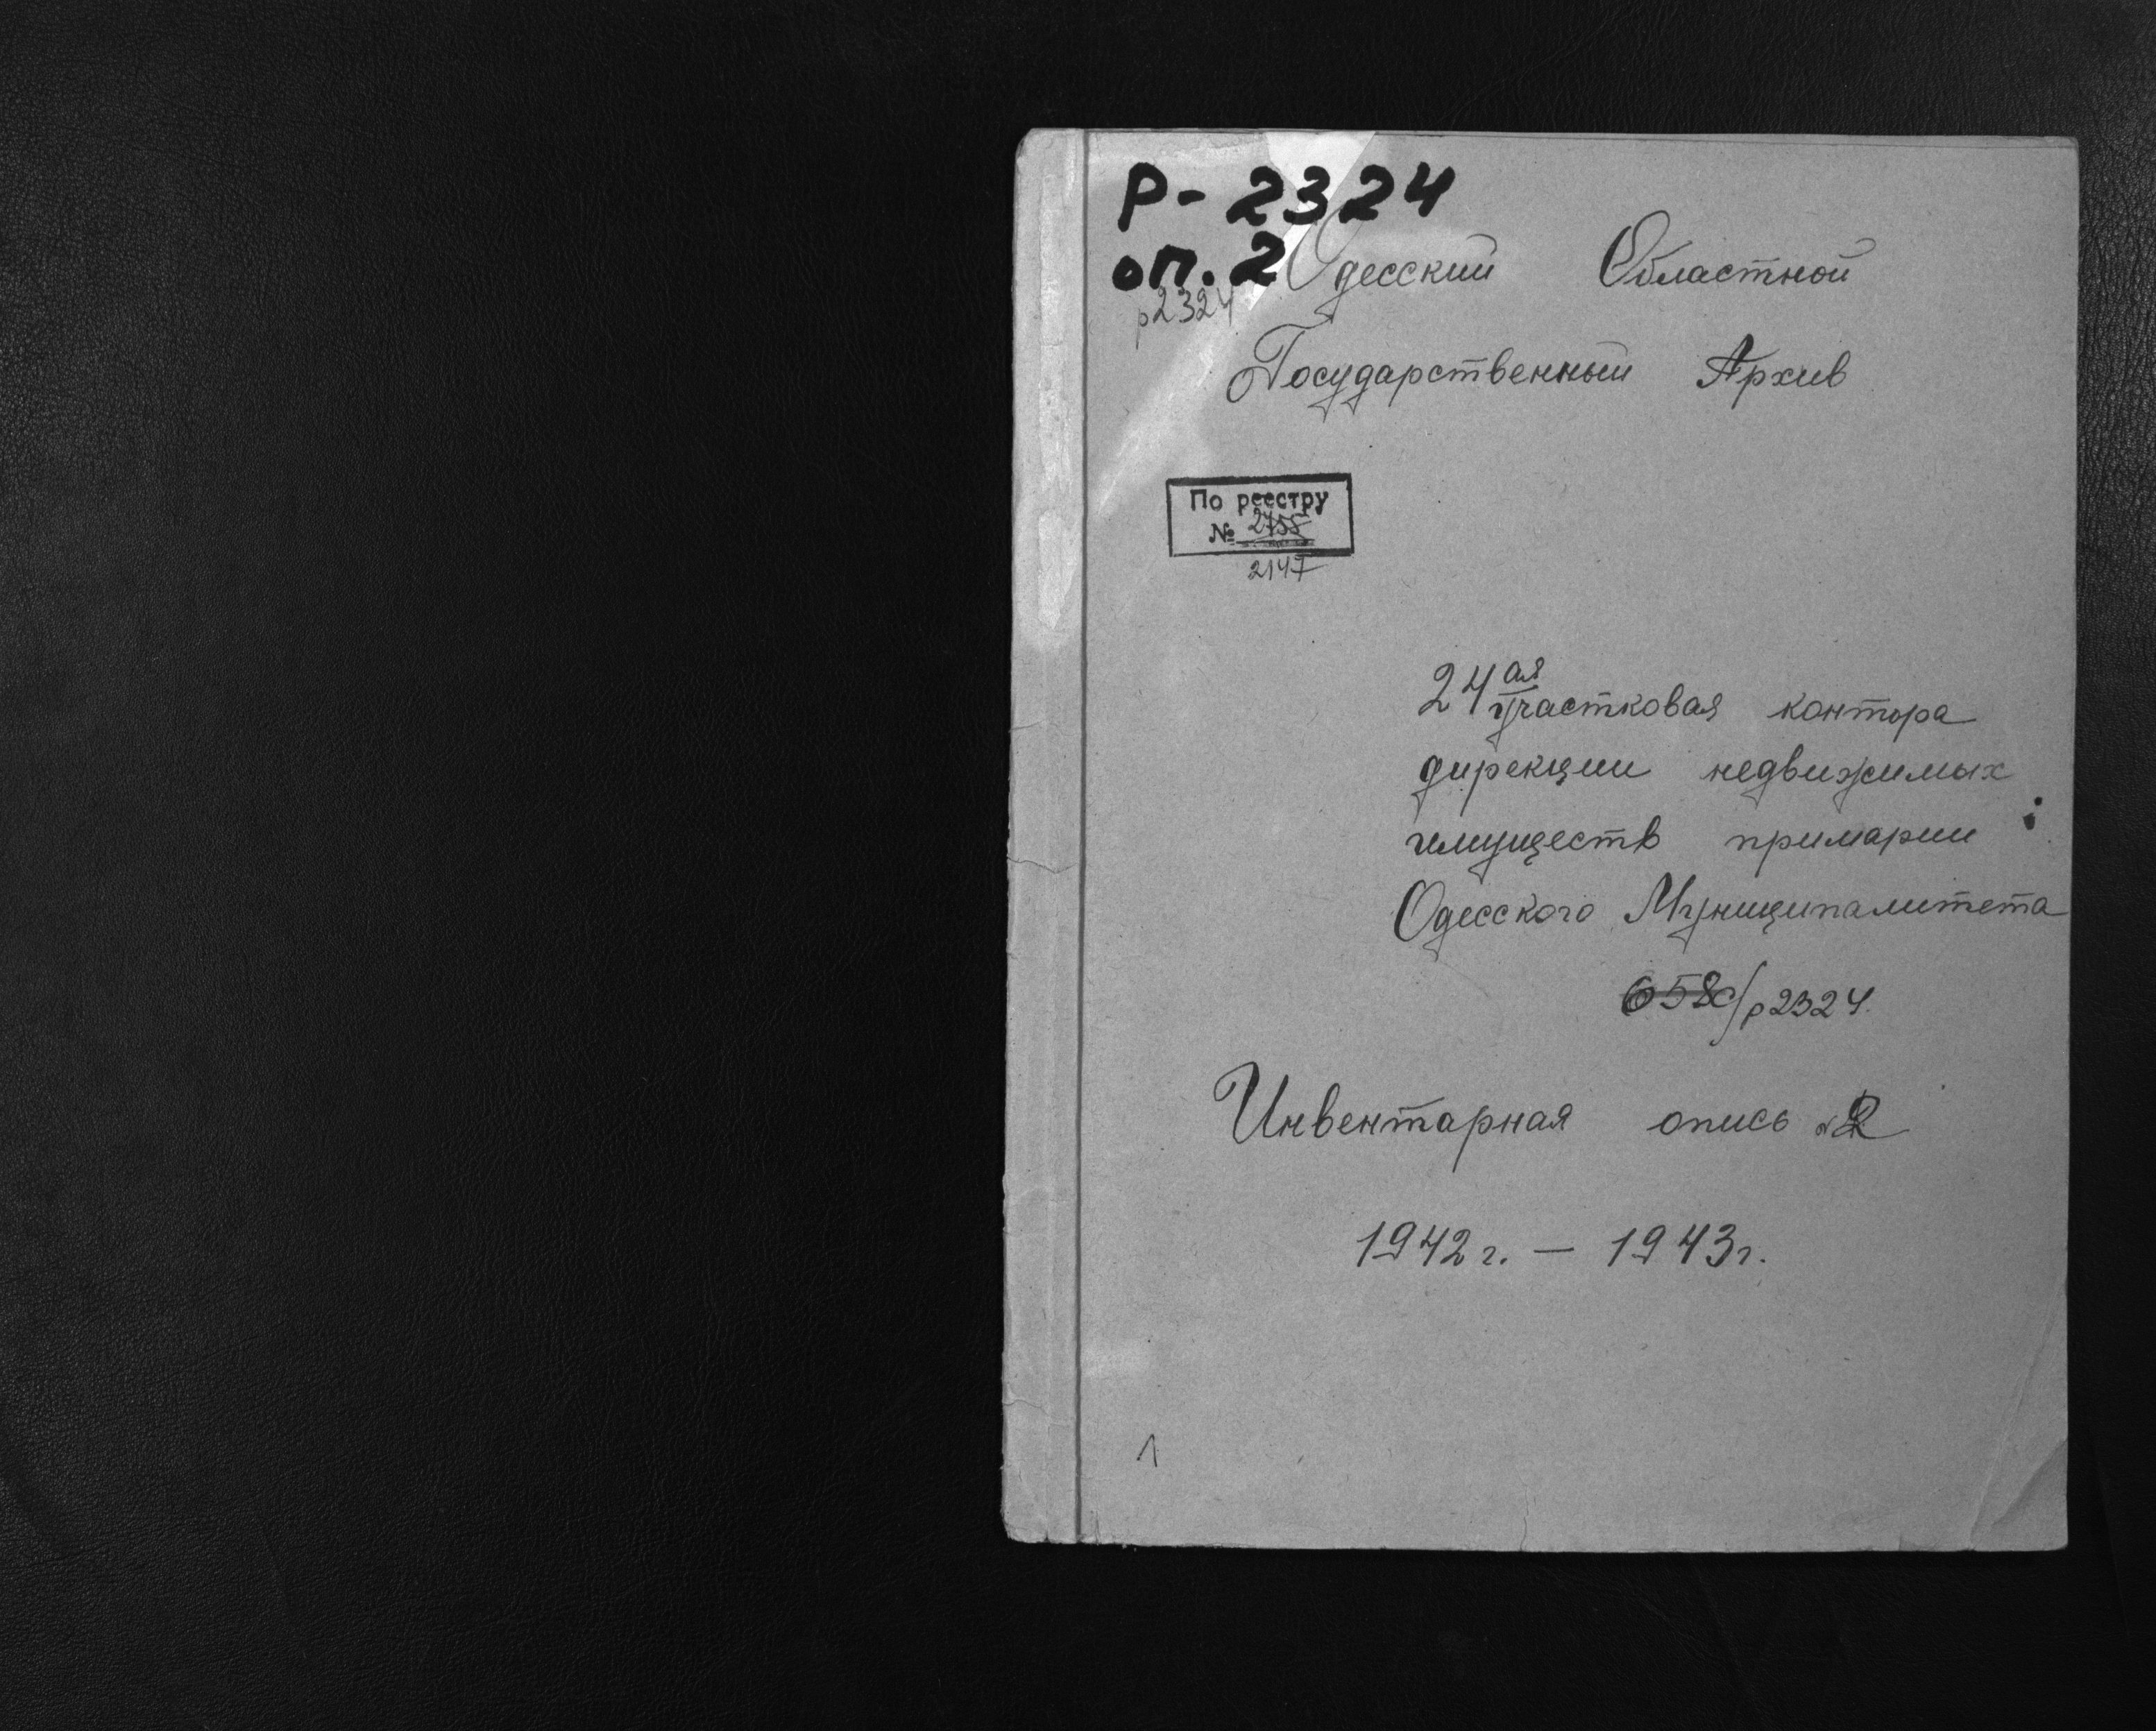 Р-2324
оп.2
р2324
Одесский Областной
Государственный Архив
По реестру
№ 2755
2147
24ая участковая контора
дирекции недвижимых
имуществ примарии
Одесского Муниципалитета
658с/р2324.
Инвентарная опись №2
1942г. — 1943г.
1